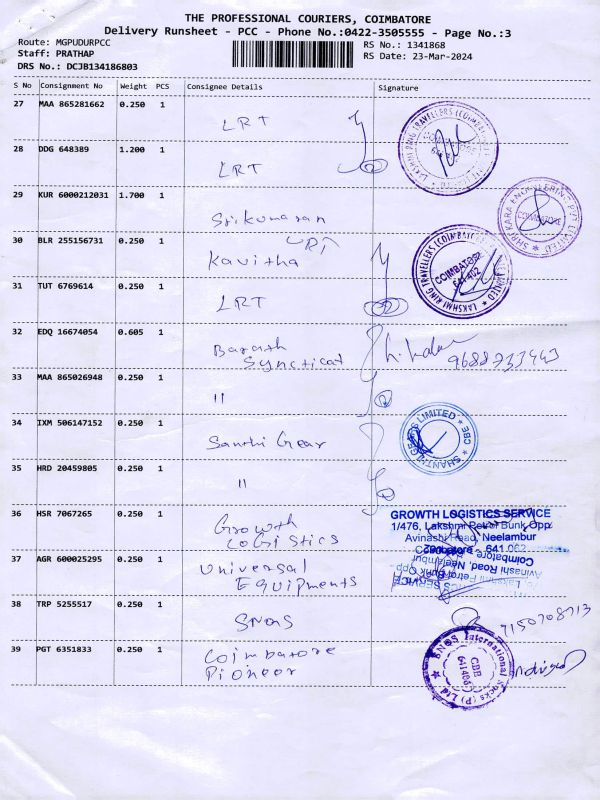 THE PROFESSIONAL COURIERS, COIMBATORE
Delivery Runsheet - PCC - Phone No.:0422-3505555 - Page No.:3
Route: MGPUDURPCC
Staff: PRATHAP
DRS No.: DCJB134186803
RS No.: 1341868
RS Date: 23-Mar-2024
S No Consignment No Weight PCS Consignee Details Signature
27 MAA 865281662 0.250 1
LRT
28 DDG 648389 1.200 1
LRT
29 KUR 6000212031 1.700 1
Srikumaran
LRT
30 BLR 255156731 0.250 1
Kavitha
31 TUT 6769614 0.250 1
LRT
32 EDQ 16674054 0.605 1
Barath
Synctical
9688733443
33 MAA 865026948 0.250 1
"
34 IXM 506147152 0.250 1
Santhi Gear
SHANTHI GEARS LIMITED ★ CBE ★
35 HRD 20459805 0.250 1
"
36 HSR 7067265 0.250 1
Growth
Logistics
GROWTH LOGISTICS SERVICE
1/476, Lakshmi Petrol Bunk Opp.
Avinashi Road, Neelambur
Coimbatore - 641 062
37 AGR 600025295 0.250 1
Universal
Equipments
38 TRP 5255517 0.250 1
SNQS
7150708713
39 PGT 6351833 0.250 1
Coimbatore
Pioneer
LAKSHMI RING TRAVELLERS (COIMBATORE) LIMITED ★
COIMBATORE
641 402
COIMBATORE